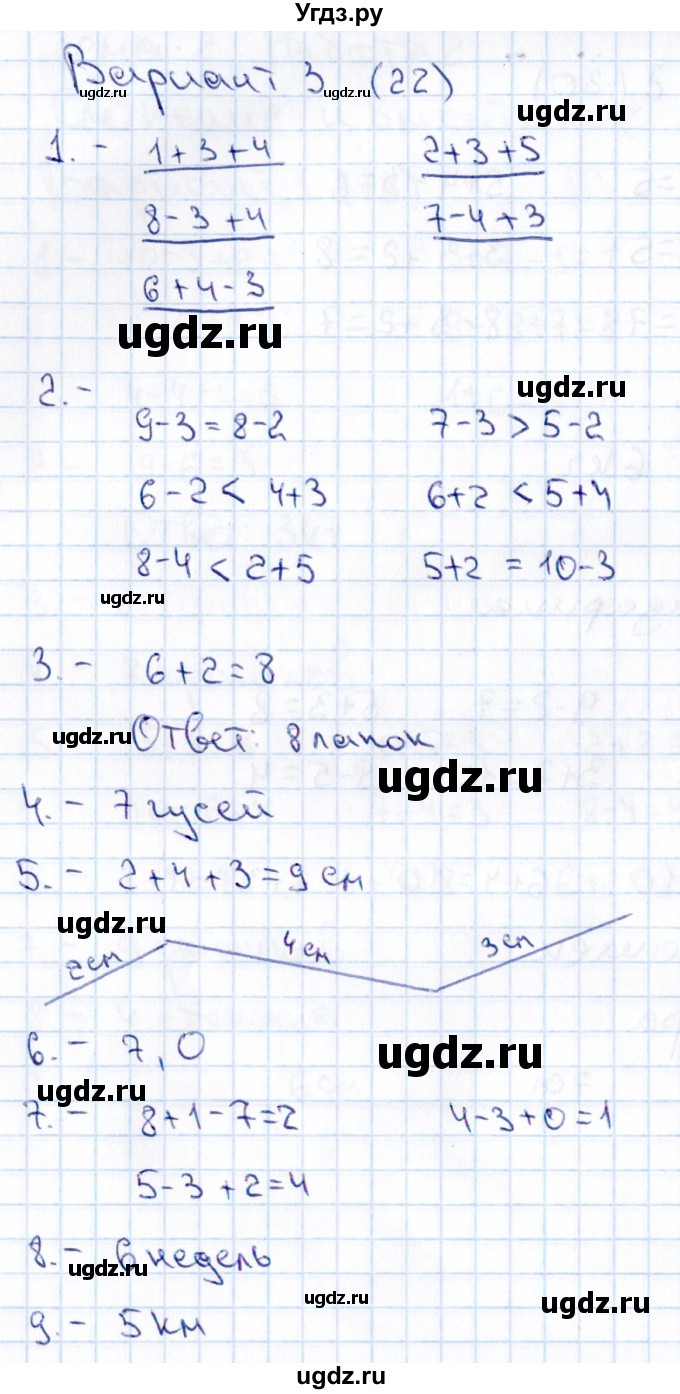 Угдз.ру
Вариант 3 (22)
ugdz.ru ugdz.ru
ugdz.ru
1. - 1+3+4 2+3+5
8-3+4 7-4+3
6+4-3
ugdz.ru
ugdz.ru
2. -
9-3=8-2 7-3>5-2
6-2< 4+3 6+2 <5+4
8-4<2+5 5+2 = 10-3
ugdz.ru
3. - 6+2=8
ugdz.ru Ответ: 8 лапок
ugdz.ru
4. - 7 гусей
5. - 2+4+3=9см
ugdz.ru
2см 4см 3см
6. - 7, 0
ugdz.ru
ugdz.ru
7. - 8+1-7=2 4-3+0=1
5-3+2=4
8. - 6 недель
ugdz.ru
ugdz.ru ugdz.ru
9. - 5 км
ugdz.ru